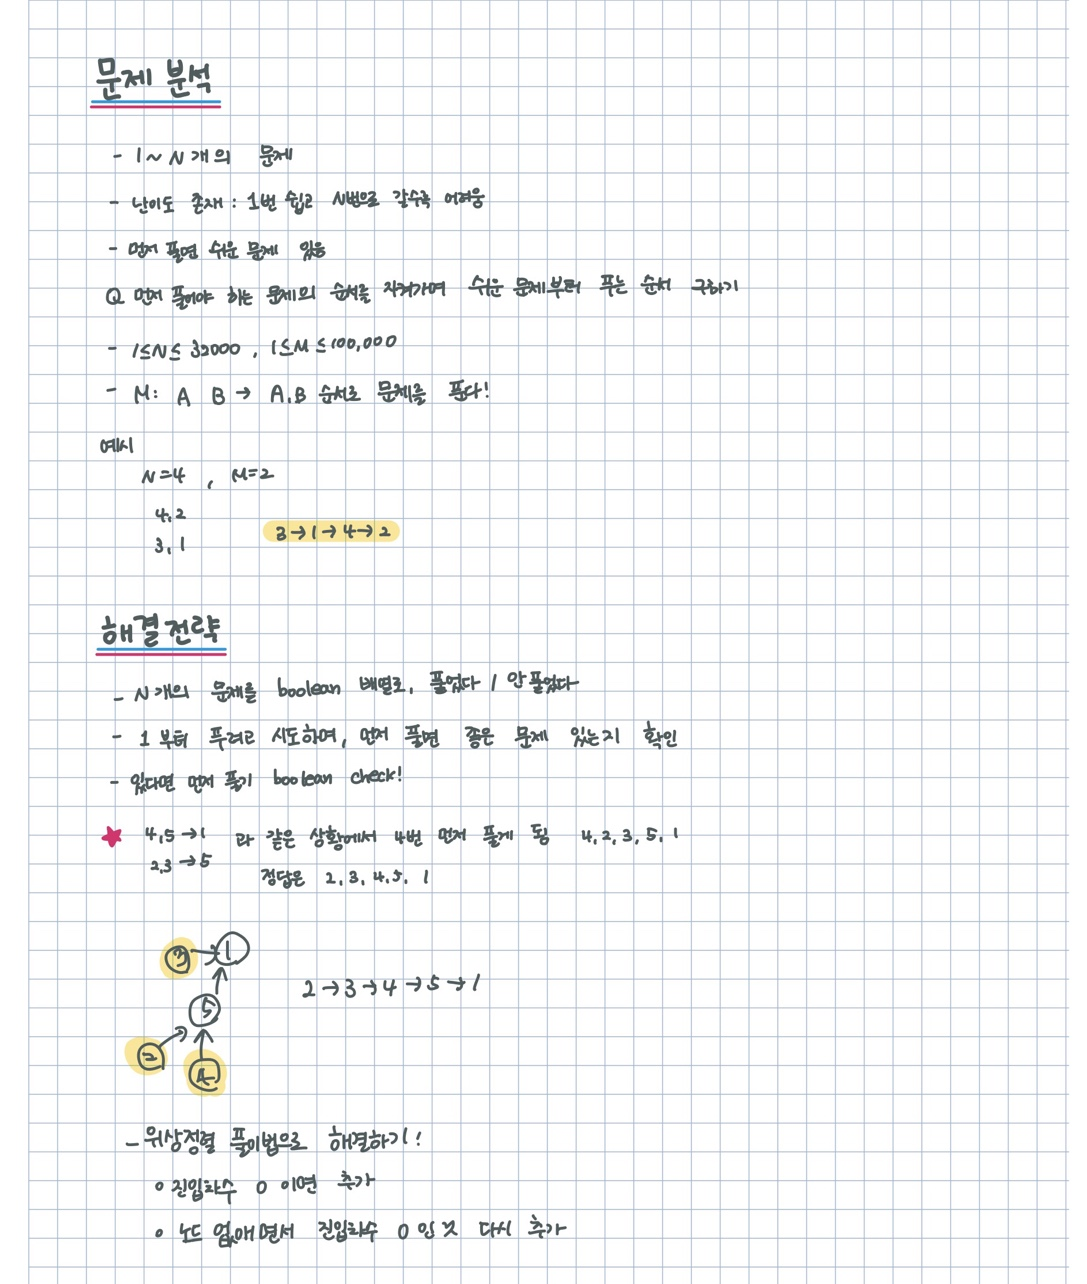 문제 분석
- 1 ~ N 개의 문제
- 난이도 존재 : 1번 쉽고 N번으로 갈수록 어려움
- 먼저 풀면 쉬운 문제 있음
Q 먼저 풀어야 하는 문제의 순서를 지켜가며 쉬운 문제부터 푸는 순서 구하기
- 1≤N≤ 32000 , 1≤M ≤100,000
- M: A B → A,B 순서로 문제를 푼다!
예시
N=4 , M=2
4,2
3,1
3→1→4→2
해결전략
- N개의 문제를 boolean 배열로, 풀었다 / 안풀었다
- 1부터 푸려고 시도하며, 먼저 풀면 좋은 문제 있는지 확인
- 있다면 먼저 풀기 boolean check!
★ 4,5 →1 과 같은 상황에서 4번 먼저 풀게 됨 4, 2, 3, 5, 1
2,3 →5
정답은 2, 3, 4, 5, 1
3 → 1
5
2→3→4→5→1
2
4
- 위상정렬 풀이법으로 해결하기!
o 진입차수 0 이면 추가
o 노드 없애면서 진입차수 0 인것 다시 추가